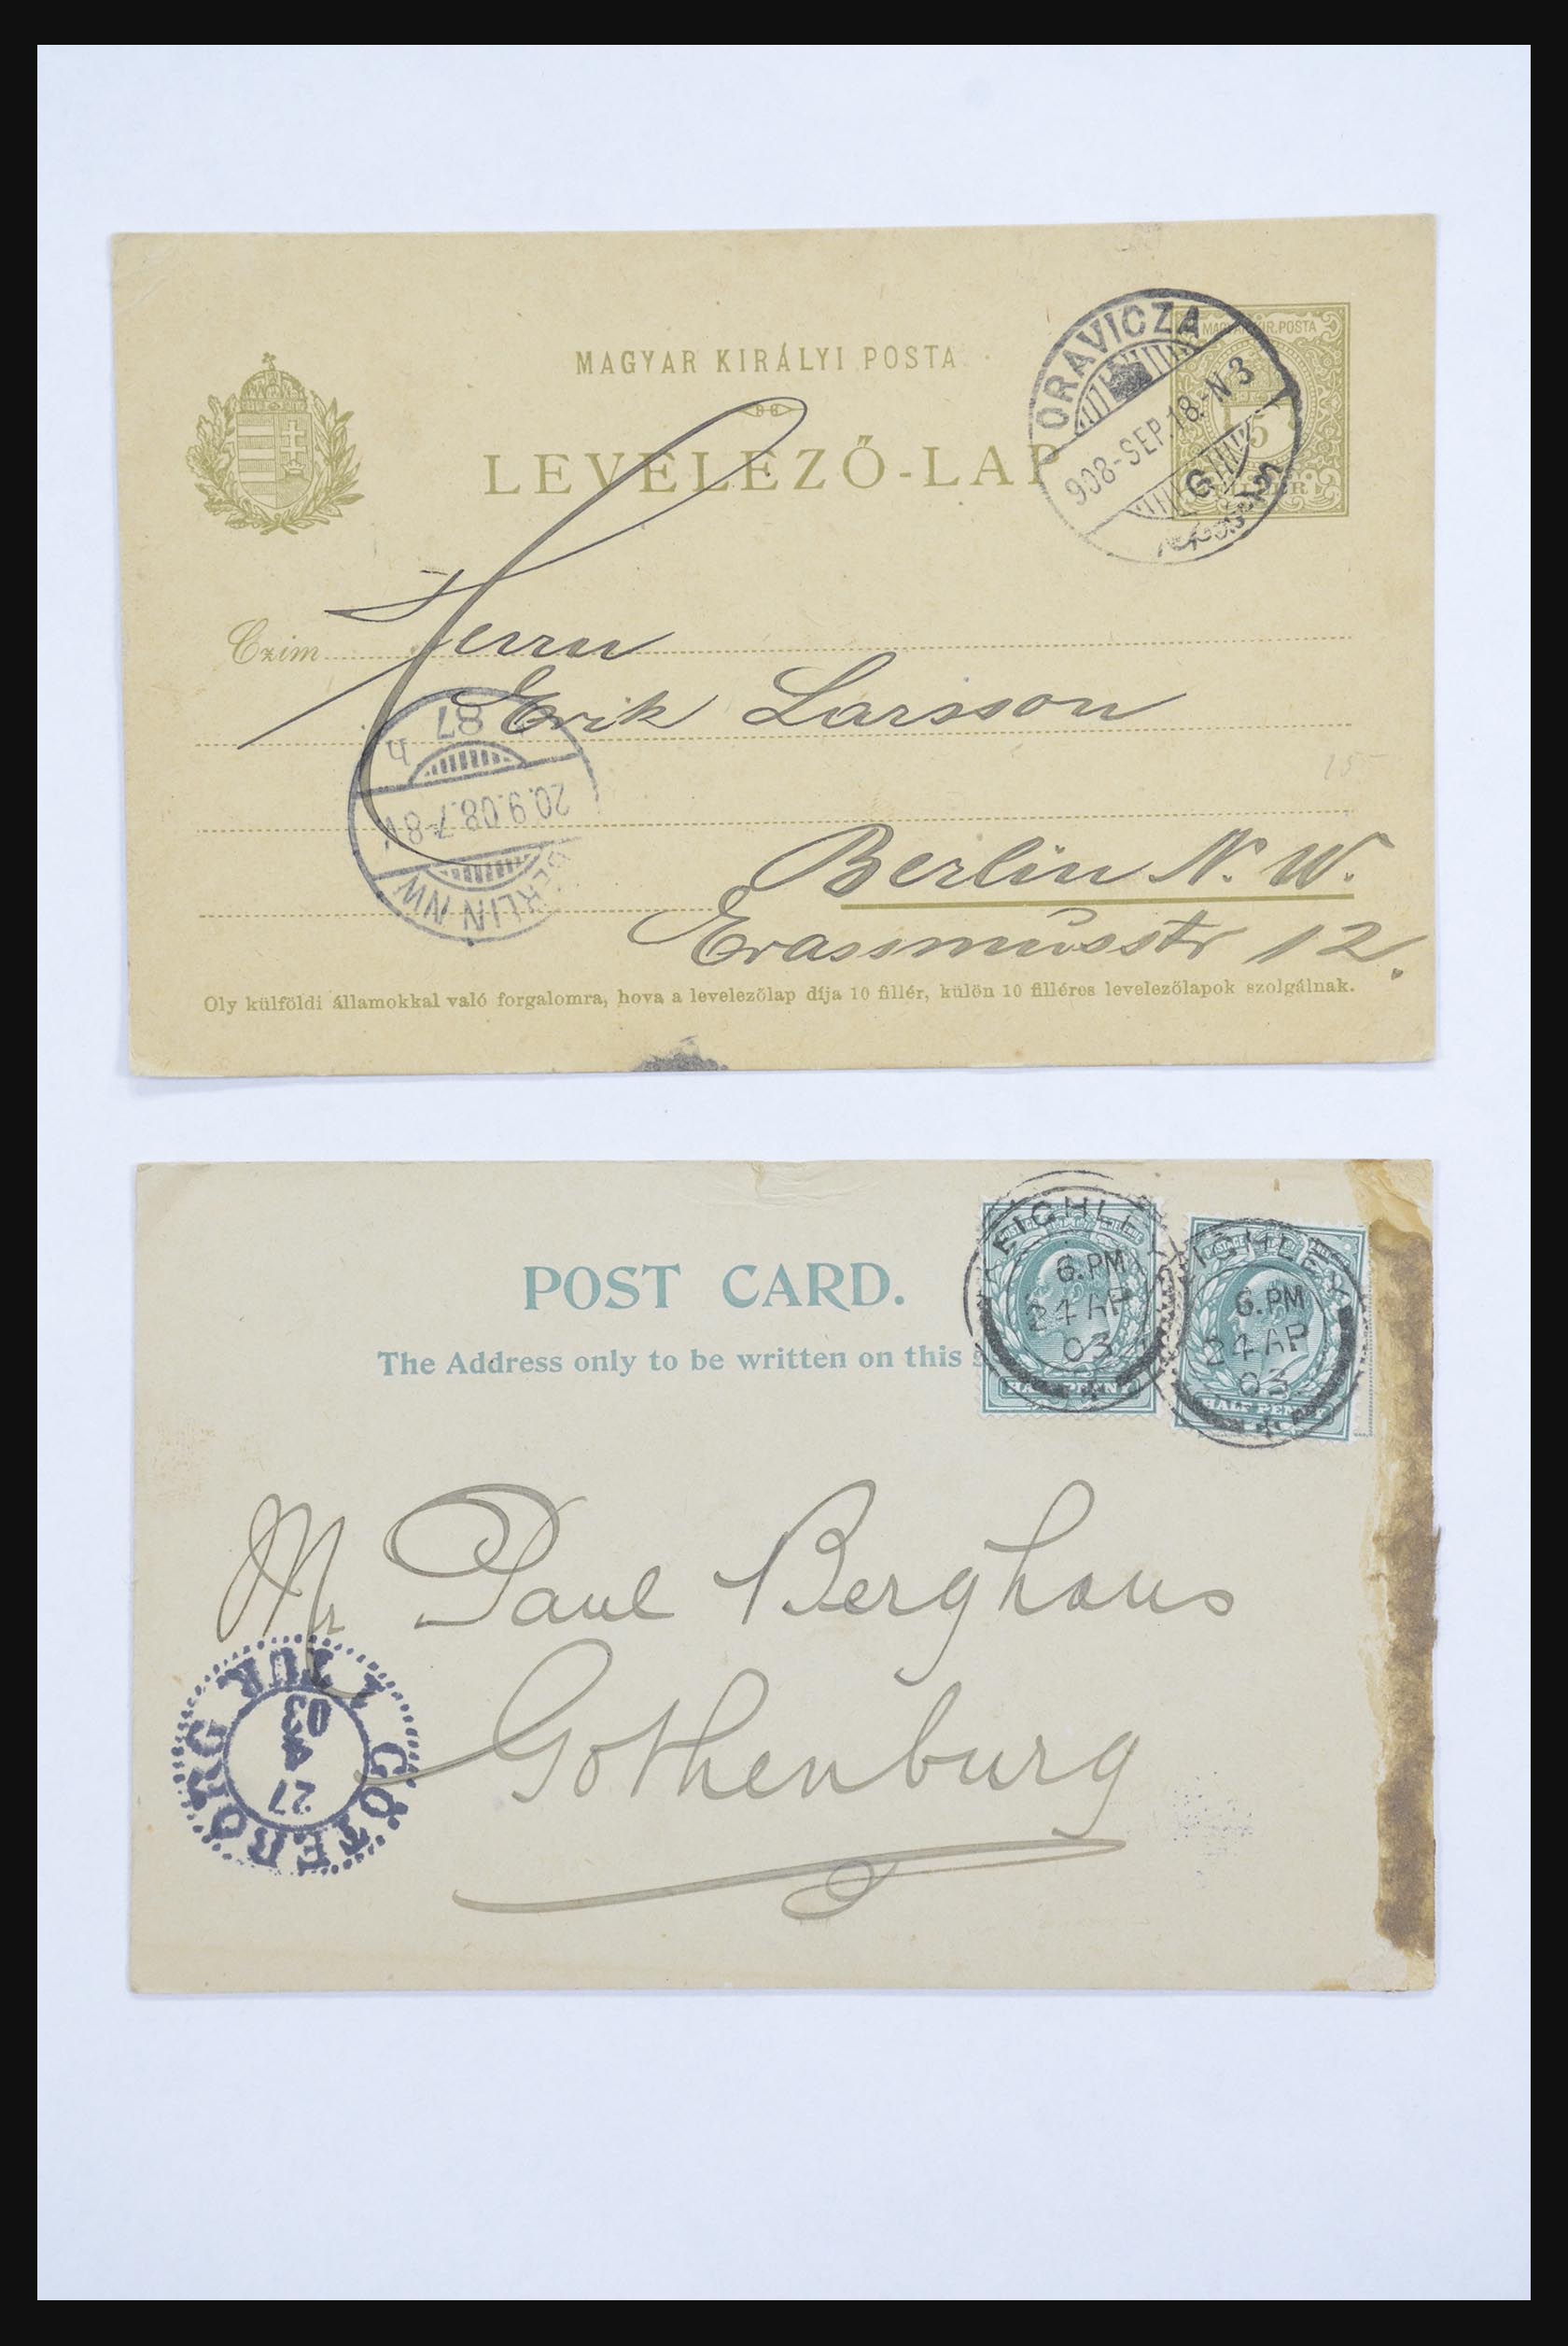 MAGYAR KIRÁLYI POSTA.
LEVELEZŐ-LAP
ORAVICZA
908-SEP.18.-N3
G
MAGYAR KIR. POSTA
5
Czim
Herrn
Erik Larsson
87
20.9.08.7-8V
BERLIN NW
h
Berlin N. W.
Erassmusstr 12.
15
Oly külföldi államokkal való forgalomra, hova a levelezőlap díja 10 fillér, külön 10 filléres levelezőlapok szolgálnak.
POST CARD.
The Address only to be written on this
KEIGHLEY
6.PM
24 AP
03
HALF PENNY
KEIGHLEY
6.PM
24 AP
03
HALF PENNY
Mr Paul Berghaus
Gothenburg
GÖTEBORG
1 TUR
27
4
03